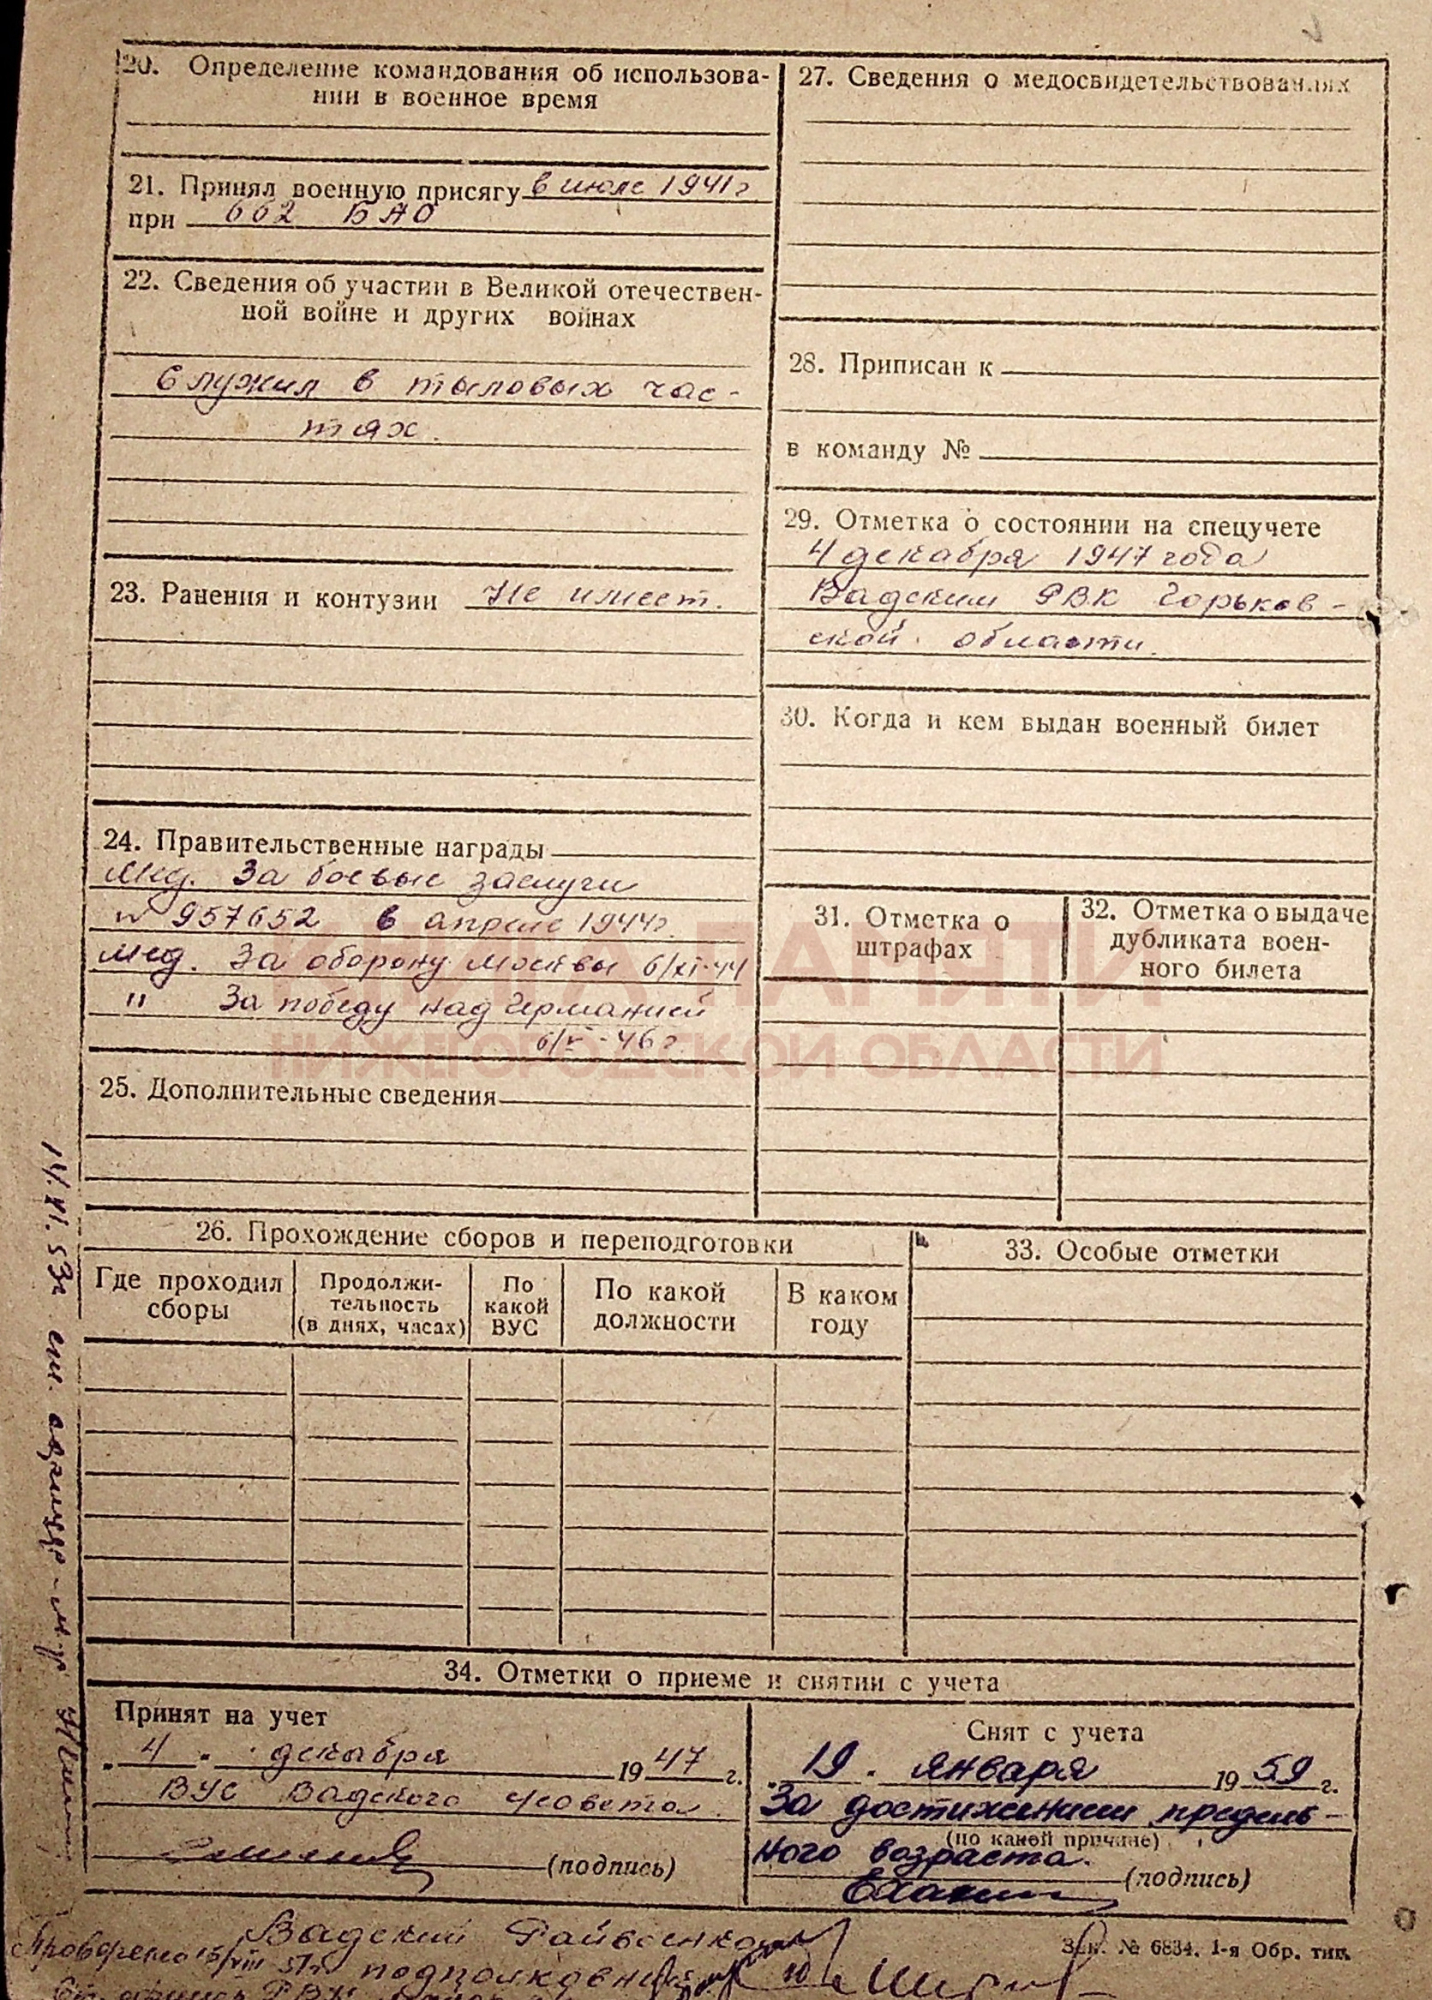 20. Определение командования об использова-
нии в военное время
21. Принял военную присягу в июле 1941 г.
при 662 БАО
22. Сведения об участии в Великой отечествен-
ной войне и других войнах
Служил в тыловых час-
тях.
23. Ранения и контузии Не имеет.
24. Правительственные награды
Мед. За боевые заслуги
№ 957652 в апреле 1944г.
Мед. За оборону Москвы 6/XI-44
" За победу над Германией
6/V-46 г.
25. Дополнительные сведения
26. Прохождение сборов и переподготовки
Где проходил сборы
Продолжи-
тельность
(в днях, часах)
По
какой
ВУС
По какой
должности
В каком
году
27. Сведения о медосвидетельствованиях
28. Приписан к
в команду №
29. Отметка о состоянии на спецучете
4 декабря 1947 года
Вадским РВК Горьков-
ской области.
30. Когда и кем выдан военный билет
31. Отметка о
штрафах
32. Отметка о выдаче
дубликата воен-
ного билета
33. Особые отметки
34. Отметки о приеме и снятии с учета
Принят на учет
"4" декабря 1947 г.
ВУС Вадского
(подпись)
Снят с учета
"19" января 1959 г.
За достижением предель-
(по какой причине)
ного возраста.
(подпись)
Зак. № 6834. 1-я Обр. тип.
Вадский Райвоенком
Проверено 15/VIII 51г. подполковник
КНИГА ПАМЯТИ
НИЖЕГОРОДСКОЙ ОБЛАСТИ